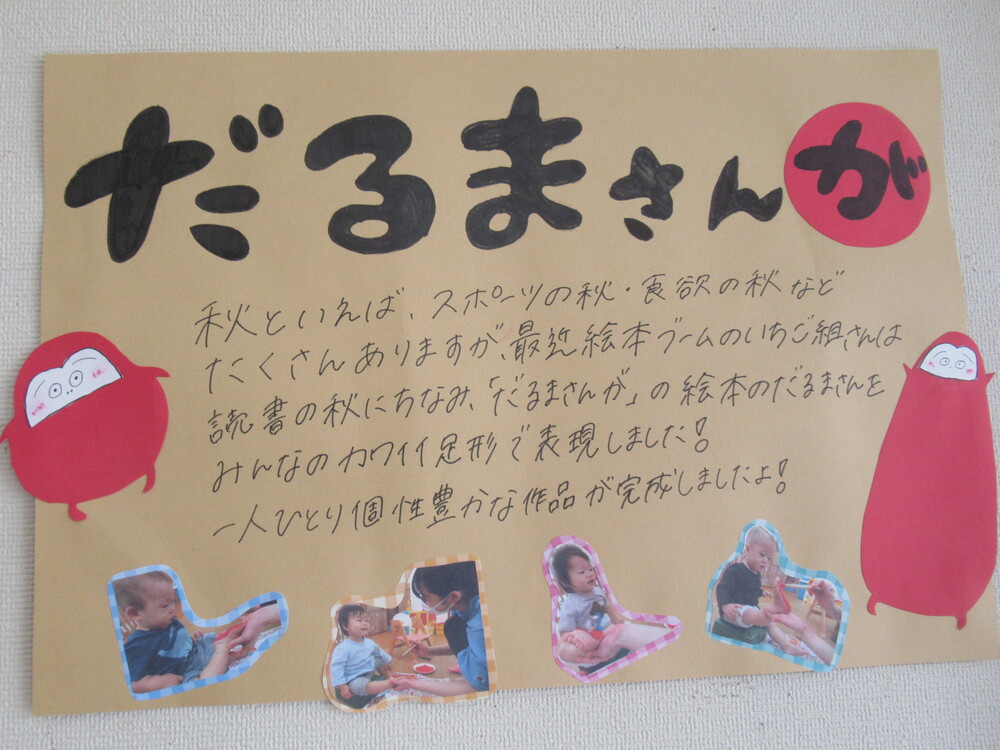 だるまさんが
秋といえば、スポーツの秋・食欲の秋など
たくさんありますが、最近絵本ブームのいちご組さんは
読書の秋にちなみ、「だるまさんが」の絵本のだるまさんを
みんなのカワイイ足形で表現しました!
一人ひとり個性豊かな作品が完成しましたよ!